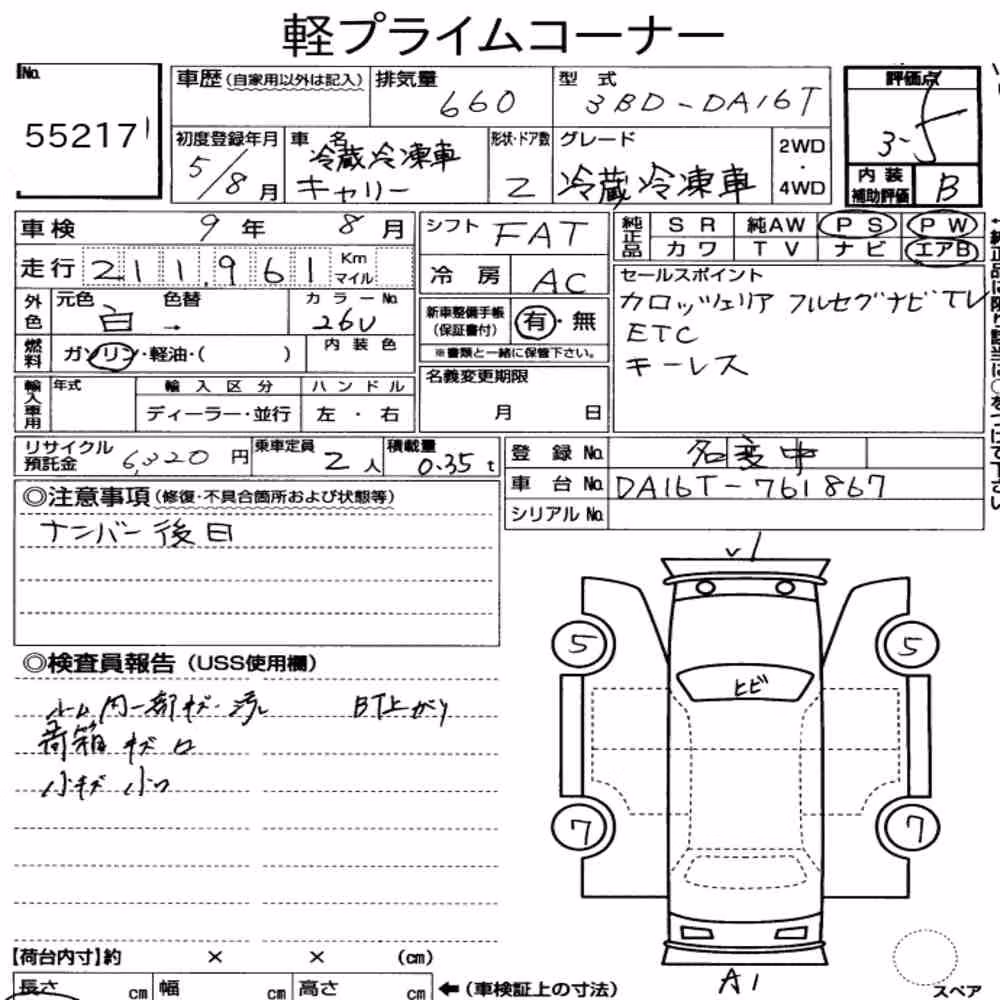 軽プライムコーナー
No.
55217
車歴(自家用以外は記入)
排気量
660
型 式
3BD-DA16T
評価点
3-5
初度登録年月
5/8月
車 名
冷蔵冷凍車
キャリー
形状・ドア数
2
グレード
冷蔵冷凍車
2WD
・
4WD
内装
補助評価
B
車検 9年 8月
シフト FAT
純正品
SR 純AW PS PW
カワ TV ナビ エアB
走行 211,961 Km マイル
冷 房 AC
セールスポイント
カロッツェリア フルセグナビTV
ETC
キーレス
外色
元色 色替
白 →
カラーNo.
26U
新車整備手帳
(保証書付)
有・無
※書類と一緒に保管下さい。
燃料
ガソリン・軽油・( )
内装色
輸入車用
年式
輸入区分
ディーラー・並行
ハンドル
左 ・ 右
名義変更期限
月 日
リサイクル
預託金
6,320円
乗車定員
2人
積載量
0.35t
登 録 No. 名変中
車 台 No. DA16T-761867
シリアル No.
◎注意事項(修復・不具合箇所および状態等)
ナンバー後日
◎検査員報告(USS使用欄)
ルーム内一部キズ・汚レ BT上がり
荷箱キズロ
小キズ小ロ
ヒビ
5
5
7
7
A1
スペア
【荷台内寸】約 × × (cm)
長さ cm 幅 cm 高さ cm ←(車検証上の寸法)